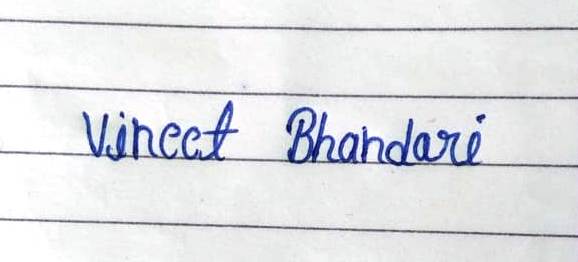 Vineet Bhandari